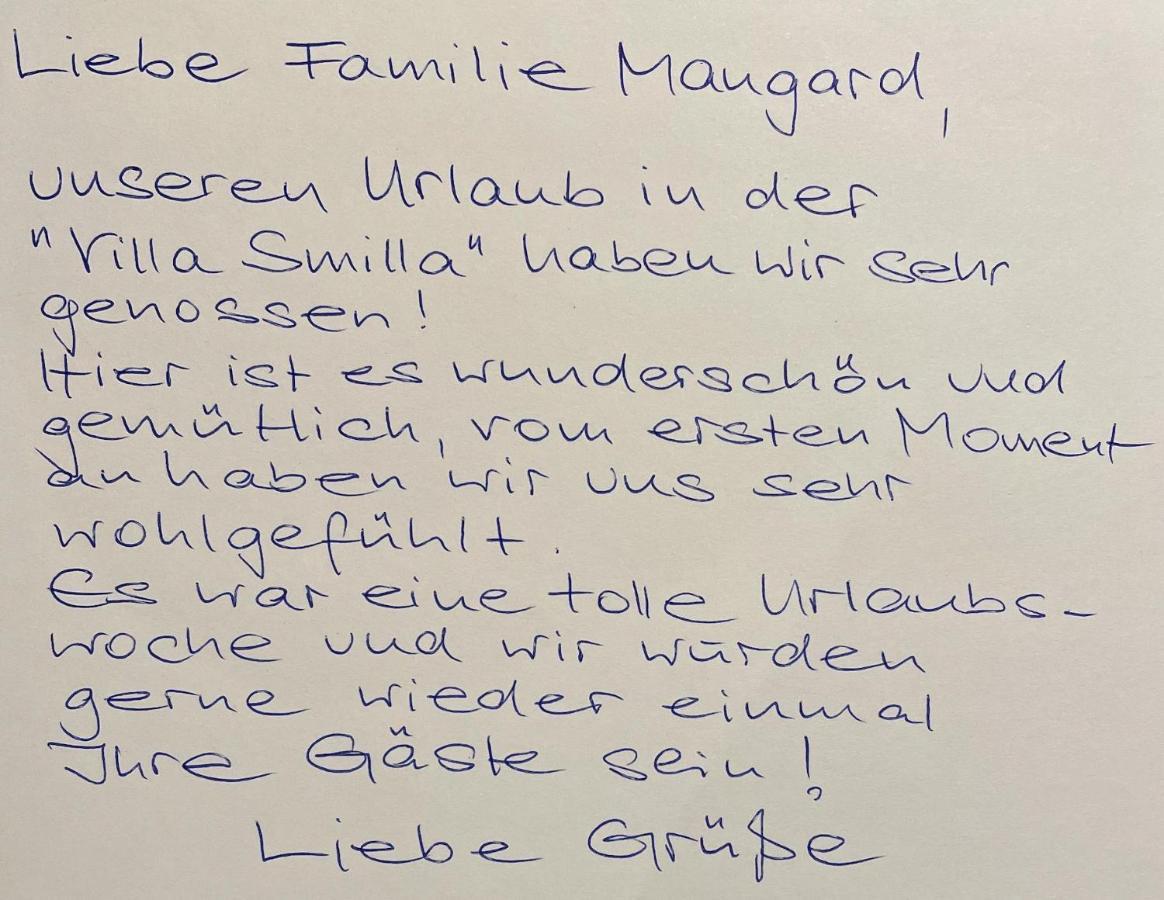 Liebe Familie Maugard,
unseren Urlaub in der
"Villa Smilla" haben wir sehr
genossen!
Hier ist es wunderschön und
gemütlich, vom ersten Moment
an haben wir uns sehr
wohlgefühlt.
Es war eine tolle Urlaubs-
woche und wir würden
gerne wieder einmal
Ihre Gäste sein!
Liebe Grüße